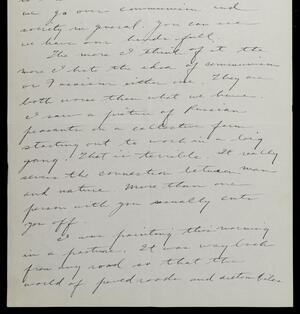 we go over communism and
society in general. You can see
we have our hands full.
The more I think of it the
more I hate the idea of communism
or Fascism either one. They are
both worse than what we have.
I saw a picture of Russian
peasants in a collective farm
starting out to work in a big
gang. That is terrible. It really
the connection between man
and nature. More than one
person with you usually cuts
you off.
I was painting this morning
in a pasture. It was way back
from any road so that the
world of paved roads and